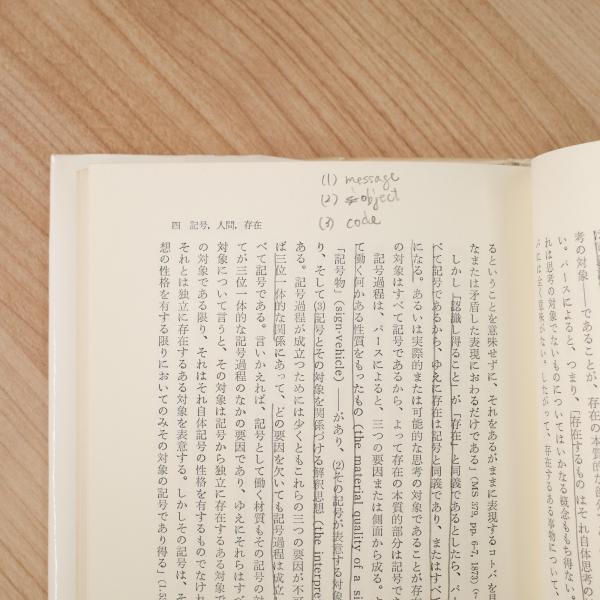 (1) message
(2) object
(3) code
四 記号,人間,存在
るということを意味せずに、それをあるがままに表現するコトバを見
なまたは矛盾した表現におわるだけである」(MS 379, pp. 6-7, 1873)(
しかし「認識し得ること」が「存在」と同義であるとしたら、パー
べて記号であるから、ゆえに存在は記号と同義であり、またはすべて
になる。あるいは実際的または可能的な思考の対象であることが存在
の対象はすべて記号であるから、よって存在の本質的部分は記号で
記号過程は、パースによると、三つの要因または側面から成る。
て働く何かある性質をもったもの (the material quality of a si
「記号物」(sign-vehicle) ——があり、(2)その記号が表意する対象
り、そして(3)記号とその対象を関係づける解釈思想 (the interpre
ある。記号過程が成立つためには少くともこれらの三つの要因が不
ば三位一体的な関係にあって、どの要因を欠いても記号過程は成立
べて記号である。言いかえれば、記号として働く材質もその記号の対
てが三位一体的な記号過程のなかの要因であり、ゆえにそれらはすべ
対象について言うと、その対象は記号から独立に存在するある対象で
の対象である限り、それはそれ自体記号の性格を有するものでなけれ
それとは独立に存在するある対象を表意する。しかしその記号は、そ
想の性格を有する限りにおいてのみその対象の記号であり得る」(1.53
考の対象——であることが、存在の本質的な部分
い。パースによると、つまり、「存在するものはそれ自体思考の
れは思考の対象でないものについてはいかなる概念ももち得ない。
には全く意味がない。したがって、存在するある事物について、